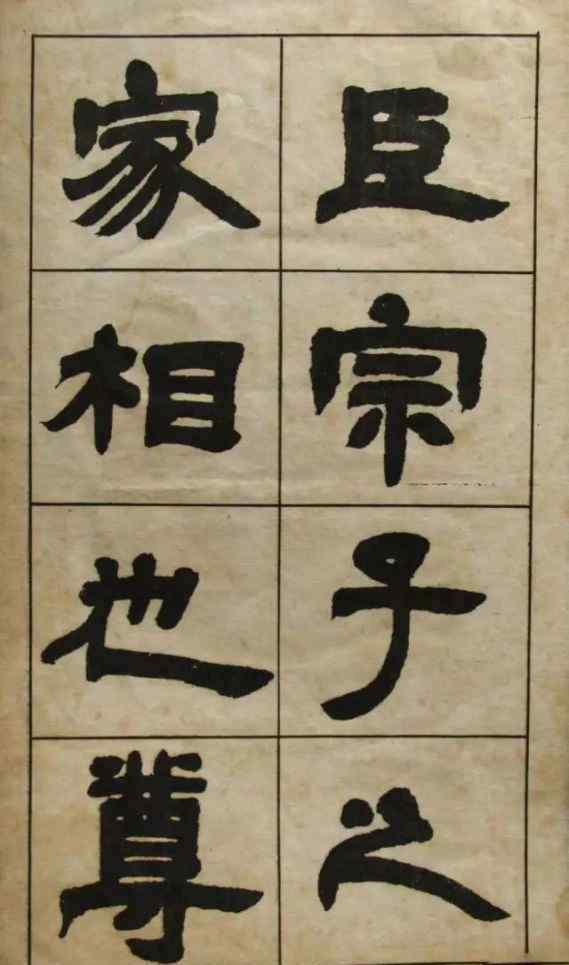 臣宗子之
家相也尊